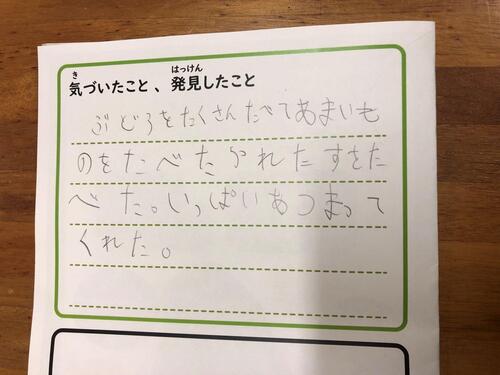 き
はっけん
気づいたこと、発見したこと
ぶどうをたくさんたべてあまいも
のをたべた
れたすをた
べた。いっぱいあつまって
くれた。